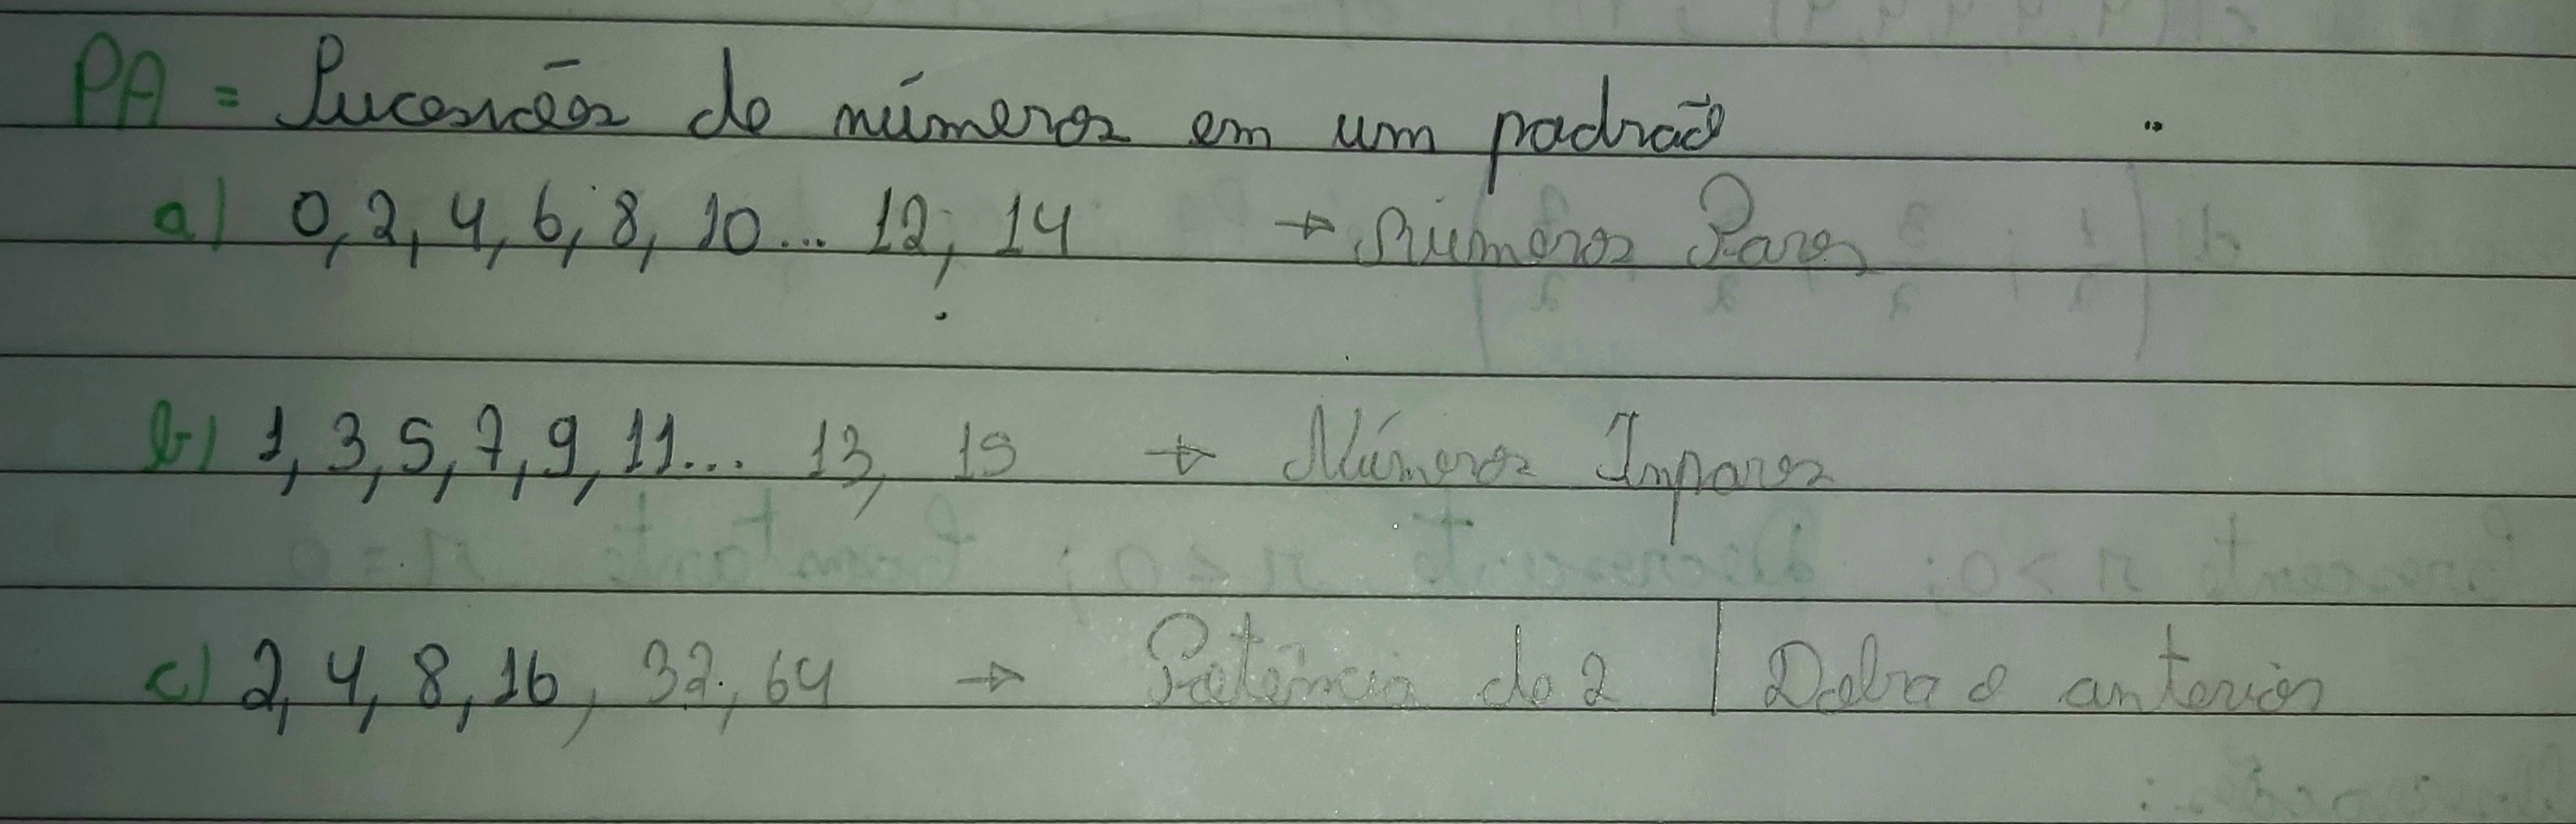 PA = Sucessões de números em um padrão
a) 0, 2, 4, 6, 8, 10... 12, 14 → Números Pares
b) 1, 3, 5, 7, 9, 11... 13, 15 → Números Impares
c) 2, 4, 8, 16, 32, 64 → Potência de 2 | Dobra o anterior